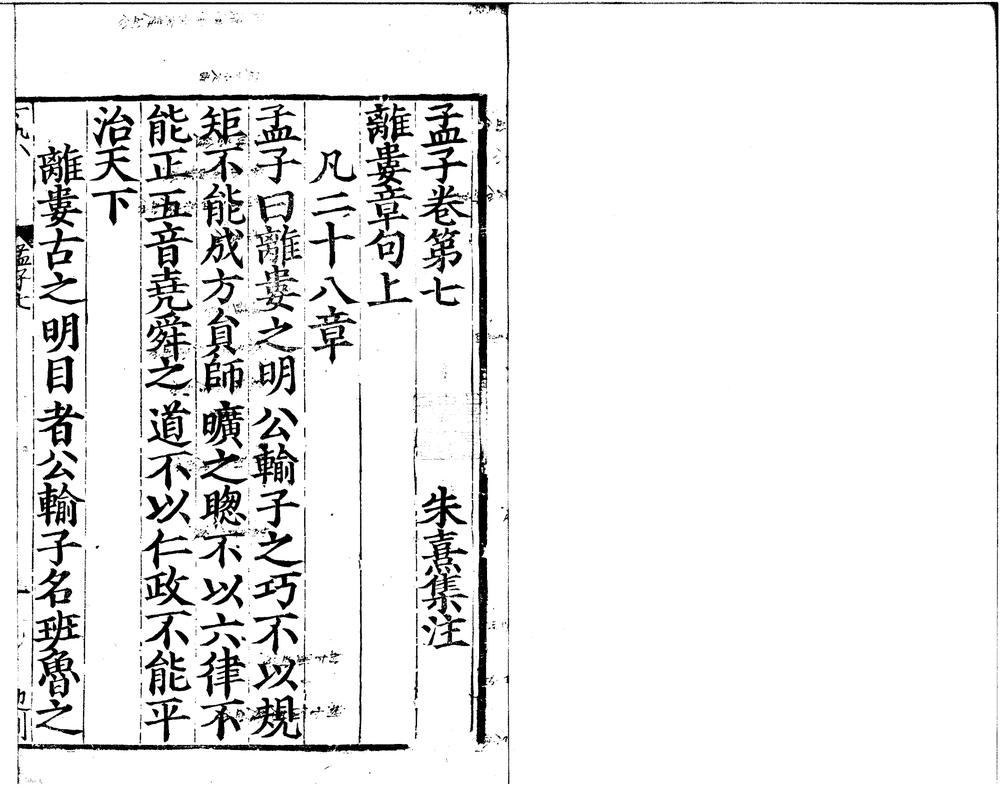 孟子卷第七　朱熹集注
離婁章句上
凡二十八章
孟子曰離婁之明公輸子之巧不以規
矩不能成方員師曠之聦不以六律不
能正五音堯舜之道不以仁政不能平
治天下
離婁古之明目者公輸子名班魯之